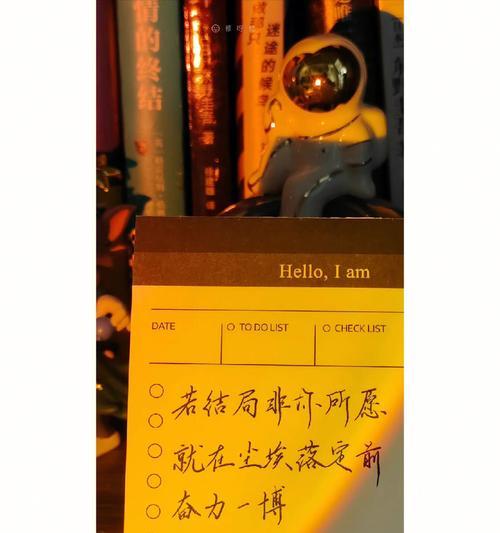 情的终结
著
做那只
迷途的候鸟
Hello, I am
DATE
TO DO LIST
CHECK LIST
若结局非你所愿
就在尘埃落定前
奋力一博